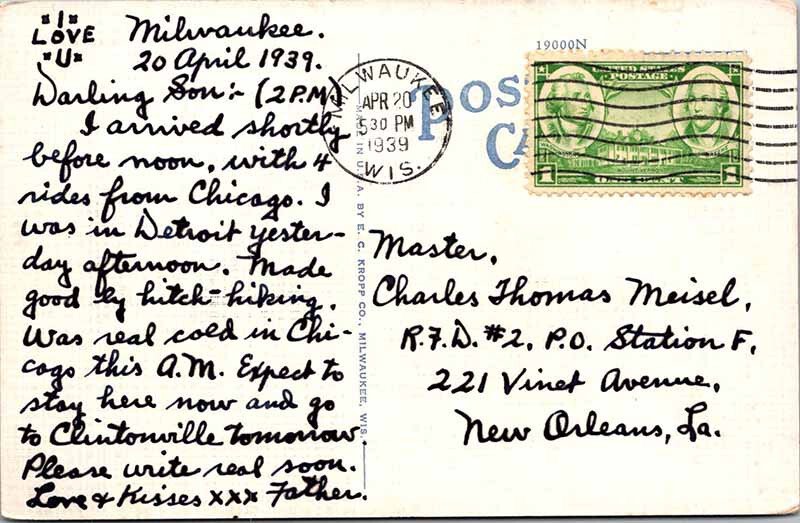 "I"
LOVE
"U"
Milwaukee.
20 April 1939.
Darling Son:- (2 P.M.)
I arrived shortly
before noon, with 4
rides from Chicago. I
was in Detroit yester-
day afternoon. Made
good by hitch-hiking.
Was real cold in Chi-
cago this A.M. Expect to
stay here now and go
to Clintonville tomorrow
Please write real soon.
Love & Kisses xxx Father.
MILWAUKEE
APR 20
5 30 PM
1939
WIS.
MADE IN U.S.A. BY E. C. KROPP CO., MILWAUKEE, WIS.
19000N
POS
CA
UNITED STATES
POSTAGE
MOUNT VERNON
1 ONE CENT 1
Master,
Charles Thomas Meisel,
R.F.D. #2, P.O. Station F,
221 Vinet Avenue,
New Orleans, La.